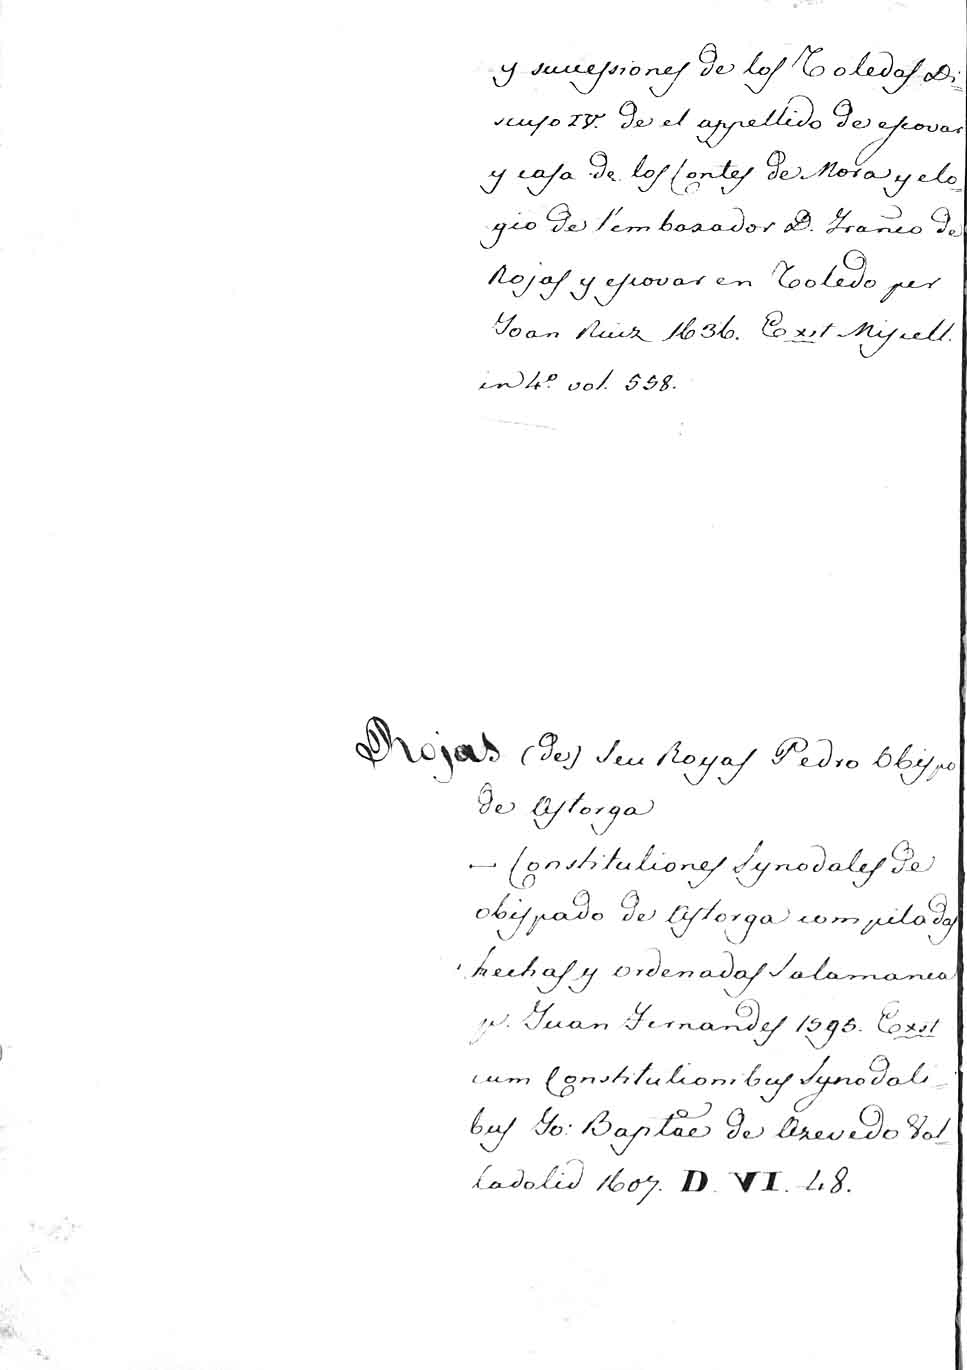 y sucessiones de los Toledos Di=
scurso IV. de el appellido de escovar
y casa de los Contes de Mora y elo=
gio de l'embaxador D. Frañco de
Rojas y escovar en Toledo per
Joan Ruiz 1636. Exit Miscell.
in 4º vol. 558.
Rojas (de) seu Royas Pedro Obispo
de Astorga
— Constitutiones Synodales de
obispado de Astorga compiladas
hechas y ordenadas Salamanca
p. Juan Fernandes 1595. Exit
cum Constitutionibus Synodali=
bus Jo: Baptae de Azevedo Val=
ladolid 1607. D. VI. 48.